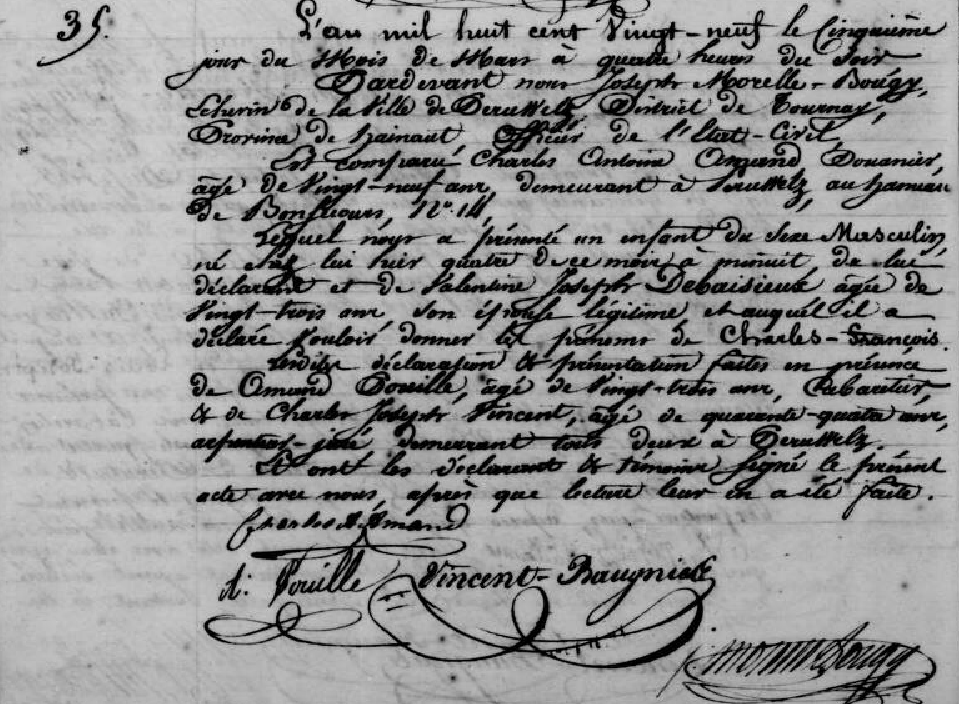 35.
L'an mil huit cent Vingt-neuf le Cinquième
jour du Mois de Mars à quatre heures du Soir
Pardevant nous Joseph Morelle-Bougy,
Echevin de la Ville de Peruwelz, District de Tournay,
Province de hainaut, Officier de l'Etat-Civil,
Est comparu Charles Antoine Amand, Douanier,
âgé de Vingt-neuf ans, demeurant à Peruwelz, au hameau
De Bonsecours, N° 14,
Lequel nous a présenté un enfant du Sexe Masculin,
né chez lui hier quatre de ce mois, à minuit, de lui
déclarant et de Valentine Joseph Debaisieux âgée de
Vingt-trois ans son épouse légitime et auquel il a
déclaré Vouloir donner les prénoms de Charles-François.
Lesdites déclaration & présentation faites en présence
de Amand Pouille, âgé de Vingt-trois ans, Cabaretier,
& de Charles Joseph Vincent, âgé de quarante-quatre ans,
arpenteur-juré demeurant tous deux à Peruwelz.
Et ont les déclarant & témoins signé le présent
acte avec nous, après que lecture leur en a été faite.
Charles A. Amand
A. Pouille Vincent-Baugniet